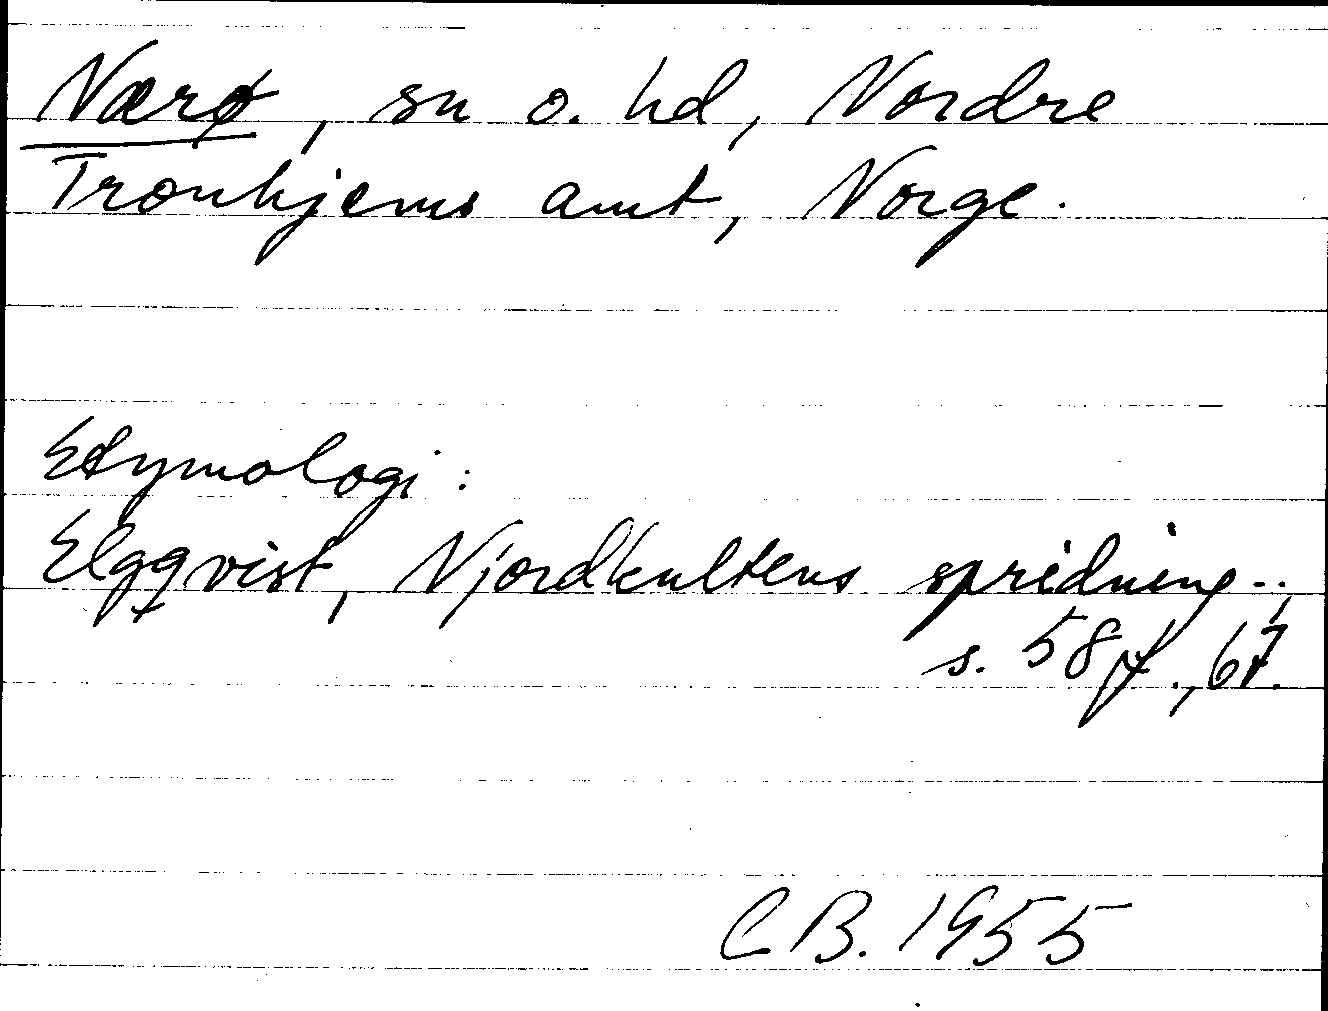 Nærø, sn o. hd, Nordre
Tronhjems amt, Norge.
Etymologi:
Elgqvist, Njordkultens spridning..,
s. 58 ff., 67.
C B. 1955